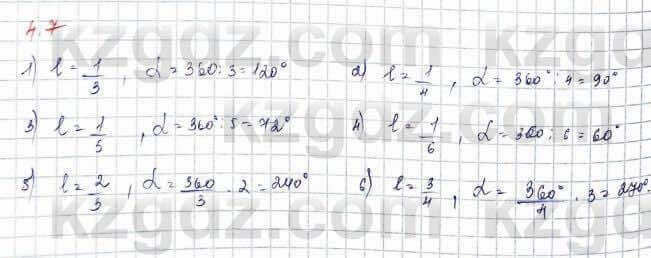 4.7
1) l = 1/3, α = 360 : 3 = 120° 2) l = 1/4, α = 360° : 4 = 90°
3) l = 1/5, α = 360° : 5 = 72° 4) l = 1/6, α = 360 : 6 = 60°
5) l = 2/3, α = 360/3 · 2 = 240° 6) l = 3/4, α = 360°/4 · 3 = 270°.
kzgdz.com kzgdz.com
kzgdz.com kzgdz.com
kzgdz.com kzgdz.com